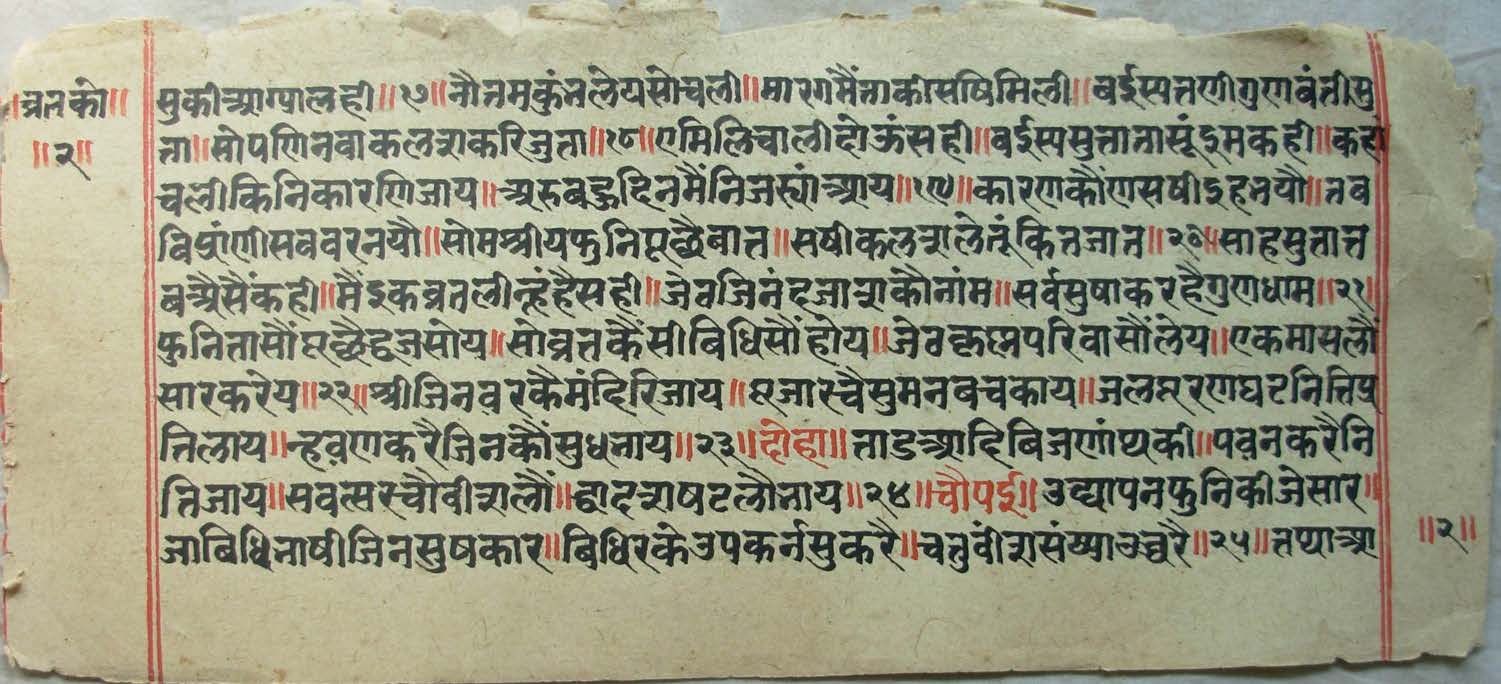 व्रतको
॥२॥
सुकीआग्पालही॥१७॥नौतमकुंनलेयसोचली॥मारगमैंताकीसषिमिली॥बईस्पतणीगुणवंतीसु
ता॥सोपणिनवाकलशकरिजुता॥१८॥एमिलिचालीदोऊंसही॥बईस्पसुतातासूंइमकही॥कहां
चलीकिनिकारणिजाय॥अरुबहुदिनमैंनिजस्यांआय॥१९॥कारणकौंणसषीइहनयौ॥तब
विप्रांणीसबवरनयौ॥सोमश्रीयफुनिपूछैबात॥सषीकलशलेतूंकितजात॥२०॥साहसुतात
बअैसैंकही॥मैंइकव्रतलीन्हंहैसही॥जेवजिनंदजाशकौनांम॥सर्वसुषाकरहैगुणधाम॥२१॥
फुनितासौंपूछैद्वजसोय॥सोव्रतकैंसीविधिसौंहोय॥जेवकृष्नपरिवासौंलेय॥एकमासलौं
सारकरेय॥२२॥श्रीजिनवरकैमंदिरिजाय॥पूजारचैसुमनबचकाय॥जलपूरणघटनित्तिप्र
तिलाय॥न्हवणकरैजिनकौंसुधनाय॥२३॥दोहा॥ताडआदिबिजणांप्यकी॥पवनकरैनि
तिजाय॥सवत्सरचौवीशलौं॥द्वादशषटलौनाय॥२४॥चौपई॥उद्यापनफुनिकीजेसार॥
जाबिधिनाषीजिनसुषकार॥बिधिरकेउपकर्नसुकरै॥चतुवींशसंख्याउच्चरै॥२५॥तप्याआ
॥२॥